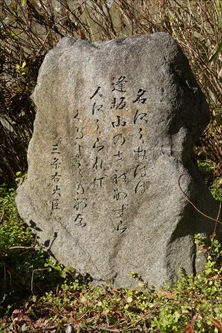 名にしおはは
逢坂山のさねかつら
人にしられて
くるよしもかな
三条右大臣